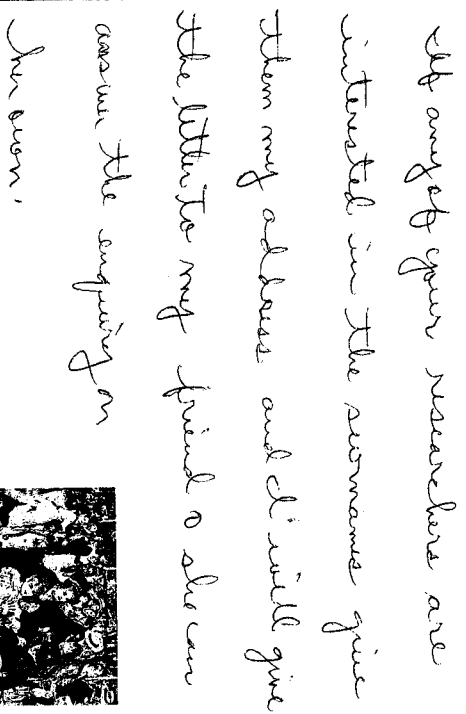 If any of your researchers are
interested in the surnames give
them my address and I will give
the letter to my friend & she can
answer the enquiry on
her own.